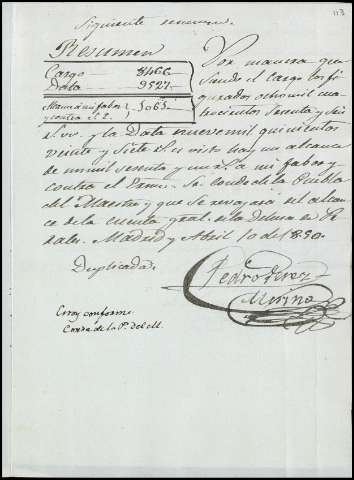 113
Siguiente
Resumen
Cargo 8466
Data 9527
Alcance a mi fabor y contra el E. 1061
Por manera que
siendo el cargo los fi
gurados ocho mil cua
trocientos sesenta y seis
r.s vn. y la Data nueve mil quinientos
veinte y siete r.s es visto hay un alcance
de un mil sesenta y un r.s a mi fabor y
contra el Exmo. Sr. Conde de la Puebla
del Maestre, y que se rebajará del alcan
ce de la cuenta gral. de la
Madrid y Abril 10 de 1830.
Duplicada
Pedro Perez
Merino
Estoy conforme
de la P.a del M.